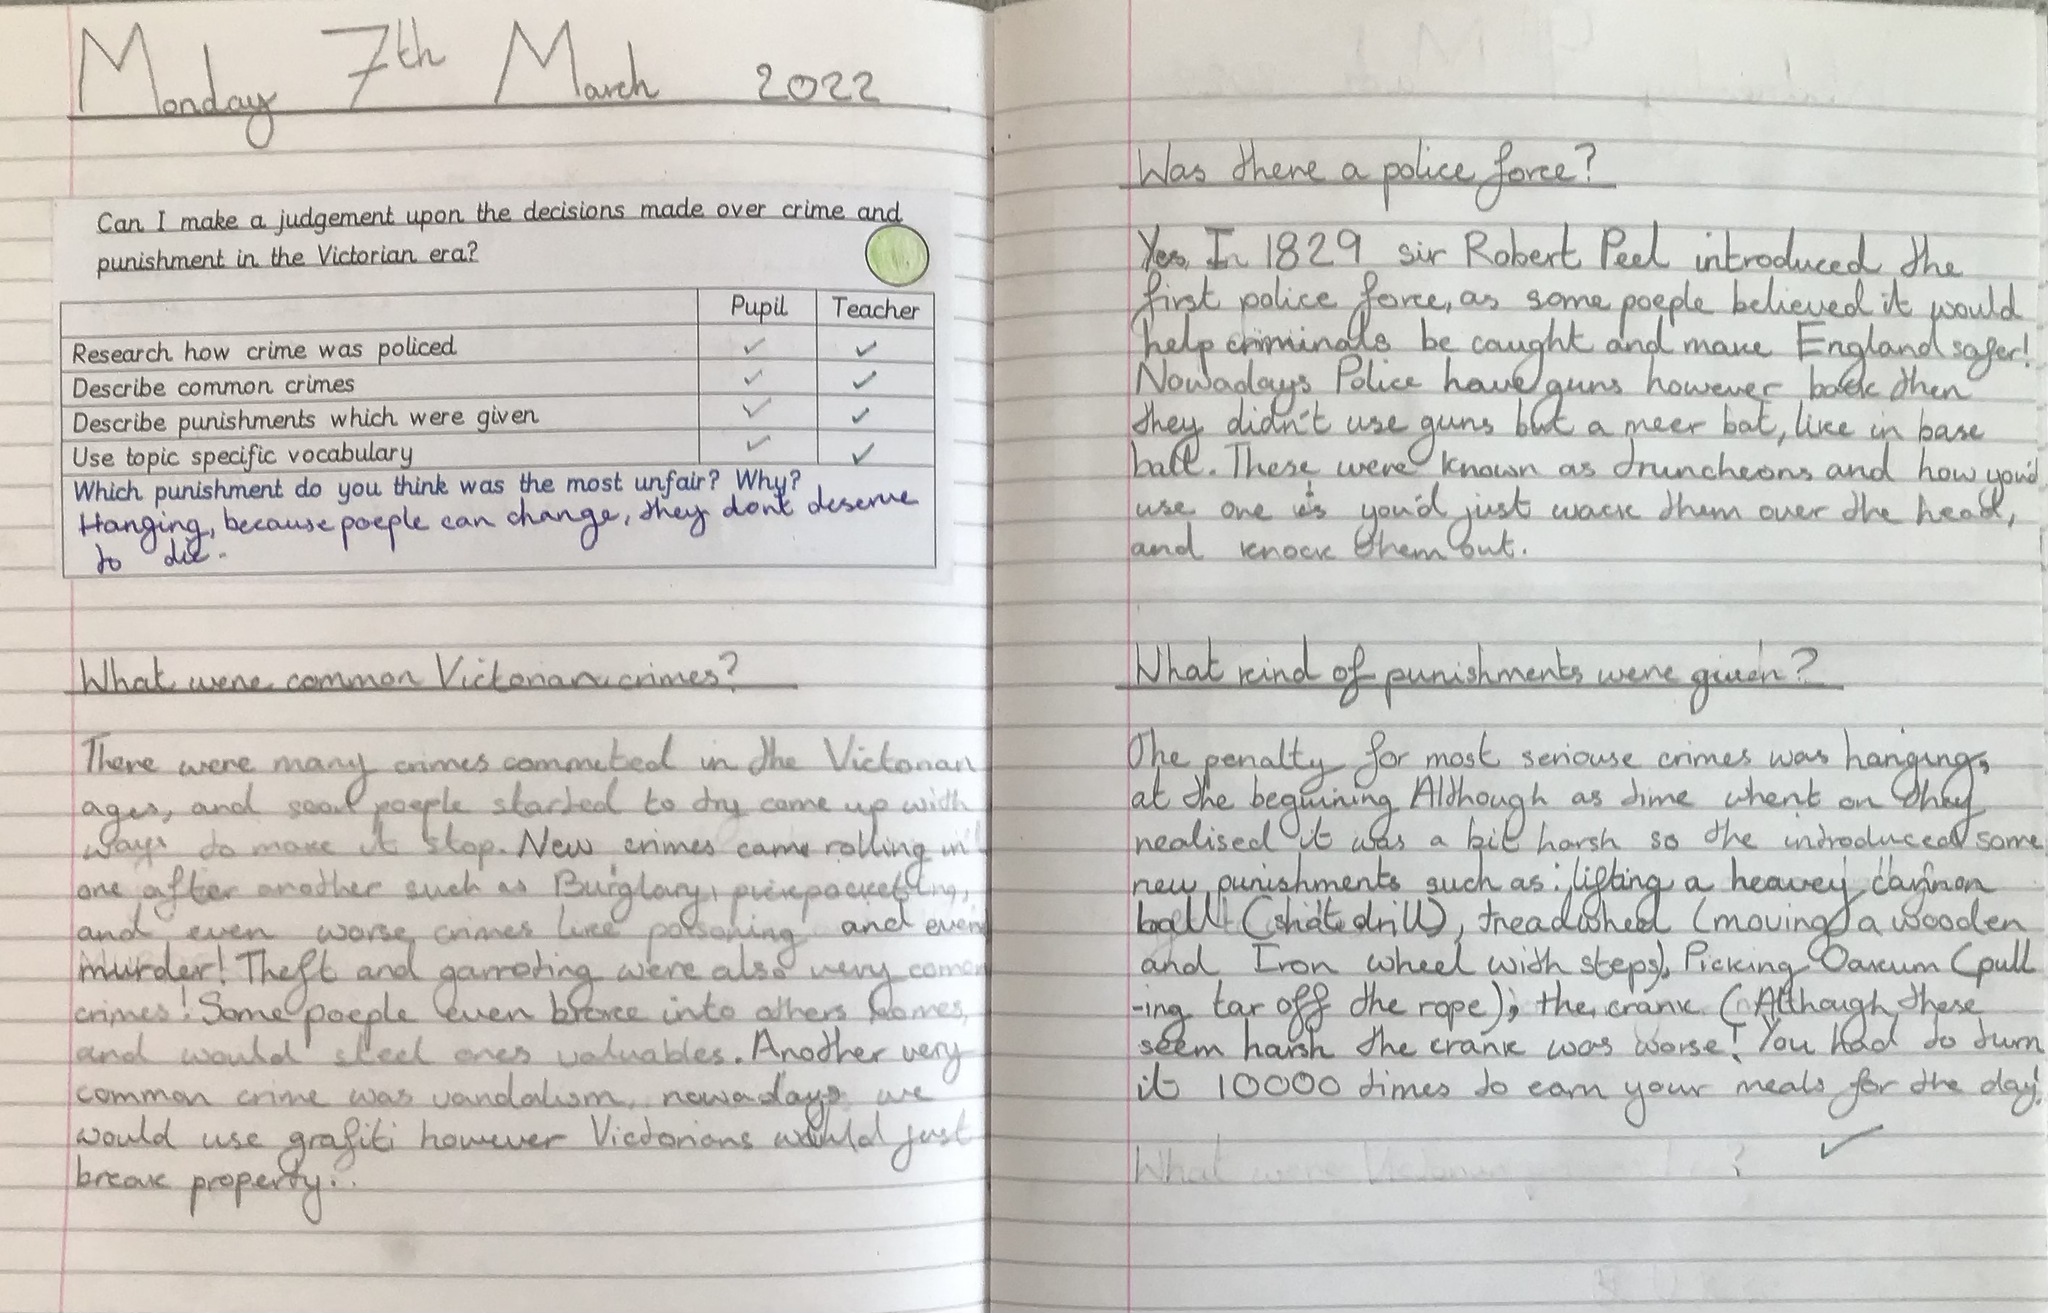 Monday 7th March 2022
Can I make a judgement upon the decisions made over crime and
punishment in the Victorian era?
Pupil Teacher
Research how crime was policed ✓ ✓
Describe common crimes ✓ ✓
Describe punishments which were given ✓ ✓
Use topic specific vocabulary ✓ ✓
Which punishment do you think was the most unfair? Why?
Hanging, because poeple can change, they dont deserve
to die.
What were common Victorian crimes?
There were many crimes commeted in the Victorian
ages, and soon poeple started to try come up with
ways to make it stop. New crimes came rolling in
one after another such as Burglary, pickpocketing,
and even worse crimes like poisoning and even
murder! Theft and garroting were also very comon
crimes! Some poeple even broke into others homes,
and would steel ones valuables. Another very
common crime was vandalism, nowadays we
would use grafiti however Victorians would just
break property..
Was there a police force?
Yes, In 1829 sir Robert Peel introduced the
first police force, as some poeple believed it would
help criminals be caught and make England safer!
Nowadays Police have guns however back then
they didn't use guns but a meer bat, like in base
ball. These were known as truncheons and how you'd
use one is you'd just wack them over the head,
and knock them out.
What kind of punishments were given?
The penalty for most seriouse crimes was hanging,
at the beginining Although as time whent on they
realised it was a bit harsh so the introduced some
new punishments such as: lifting a heavey cannon
ball (shot drill), treadwheel (moving a wooden
and Iron wheel with steps), Picking Oakum (pull
-ing tar off the rope); the crank (Although these
seem harsh the crank was worse! You had to turn
it 10000 times to earn your meals for the day!
✓
What were Victorian ?